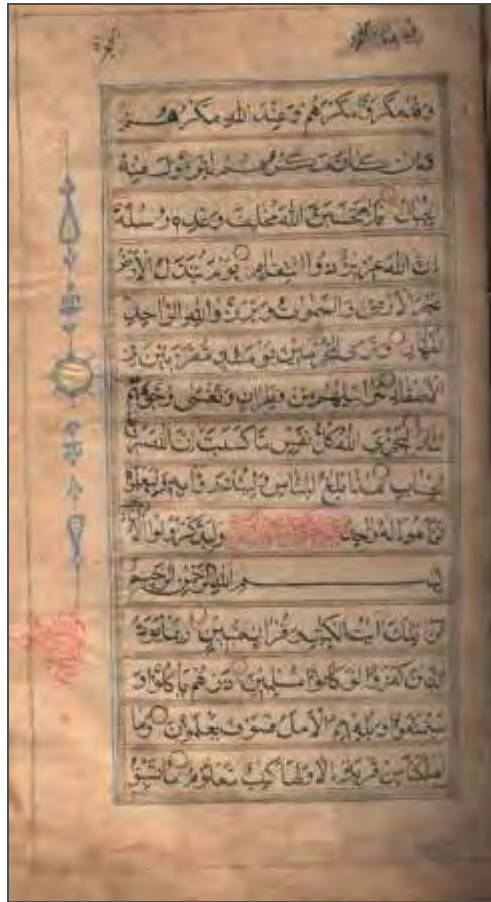 وقد مكروا مكرهم وعند الله مكرهم
وان كان مكرهم لتزول منه
الجبال فلا تحسبن الله مخلف وعده رسله
ان الله عزيز ذو انتقام يوم تبدل الارض
غير الارض والسموات وبرزوا لله الواحد
القهار وترى المجرمين يومئذ مقرنين في
الاصفاد سرابيلهم من قطران وتغشى وجوههم
النار ليجزي الله كل نفس ما كسبت ان الله سريع
الحساب هذا بلغ للناس ولينذروا به وليعلموا
انما هو اله واحد وليذكر اولوا الا
بسم الله الرحمن الرحيم
الر تلك ايت الكتب وقران مبين ربما يود
الذين كفروا لو كانوا مسلمين ذرهم ياكلوا و
يتمتعوا ويلههم الامل فسوف يعلمون وما
اهلكنا من قرية الا ولها كتاب معلوم ما تسبق